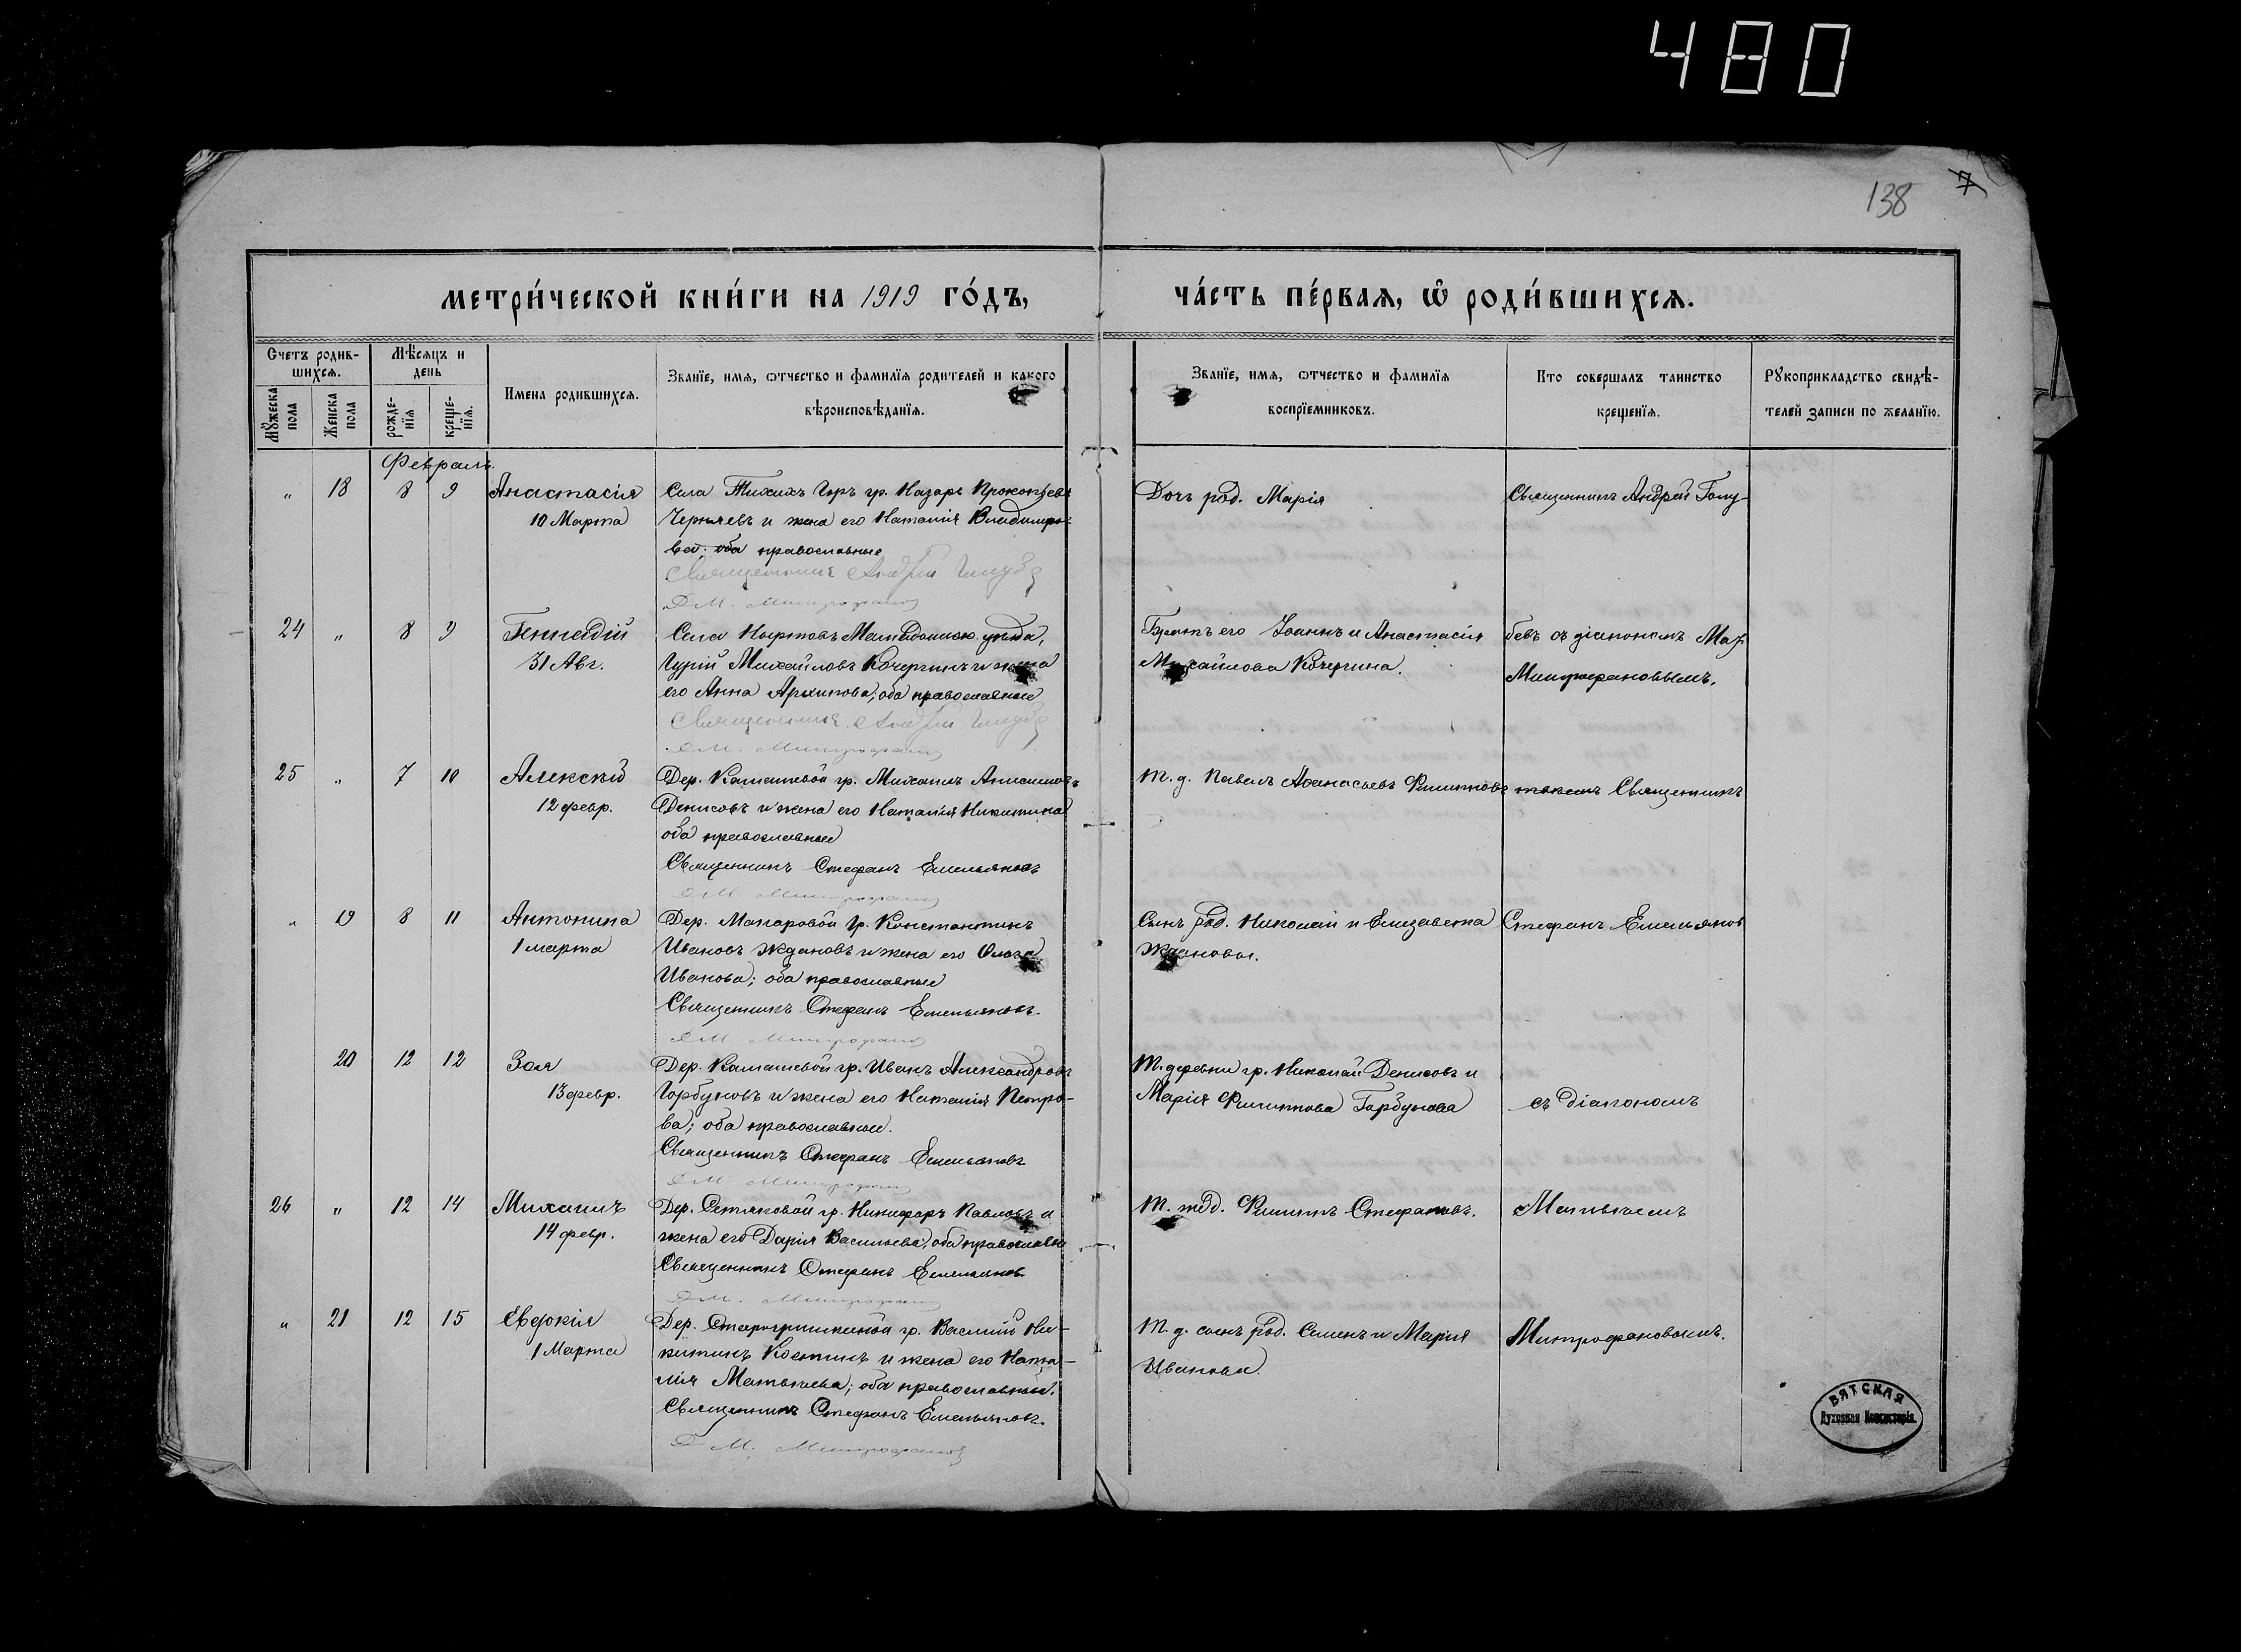 480
138
7
метри́ческой кни́ги на 1919 го́дъ,
ча́сть пе́рвая, ѿ роди́вшихся.
Счетъ родив-
шихся.
Мѣсяцъ и
день
Мужеска
пола
Женска
пола
рожде-
нїя
креще-
нїя.
Имена родившихся.
Званїе, имя, отчество и фамилїя родителей и какого
вѣроисповѣданїя.
Званїе, имя, отчество и фамилїя
воспрїемниковъ.
Кто совершалъ таинство
крещенїя.
Рукоприкладство свидѣ-
телей записи по желанїю.
Февраль.
" 18 8 9 Анастасія
10 Марта
Села Тихихъ Горъ гр. Назаръ Прокопьевъ
Черняевъ и жена его Наталія Владимиро-
ва; оба православные
Священникъ Андрей Голубе
Д М. Митрофанов
Дочь род. Марія
Священникъ Андрей Голу-
24 " 8 9 Геннадій
31 Авг.
Села уѣзда,
Гурій Михайловъ Кочергинъ и жена
его Анна Архипова, оба православные
Священникъ Андрей Голубе
Д М. Митрофанов
Братъ его Іоаннъ и Анастасія
Михайлова Кочергина.
бевъ съ діакономъ Мат.
Митрофановымъ.
25 " 7 10 Алексѣй
12 февр.
Дер. Камашевой гр. Михаилъ Анисимовъ
Денисовъ и жена его Наталія Никитина
оба православные
Священникъ Стефанъ Емельяновъ
Д М Митрофанов
Т. д. Павелъ Аѳанасьевъ Филипповъ
Священникъ
" 19 8 11 Антонина
1 марта
Дер. Макаровой гр. Константинъ
Ивановъ Ждановъ и жена его Ольга
Иванова; оба православные
Священникъ Стефанъ Емельяновъ.
Д М Митрофанов
Сынъ род. Николай и Елизавета
Ждановы.
Стефанъ Емельяновъ
20 12 12 Зоя
13 февр.
Дер. Камашевой гр. Иванъ Александровъ
Горбуновъ и жена его Наталія Петро-
ва; оба православные.
Священникъ Стефанъ Емельяновъ
Д М Митрофанов
Т. деревни гр. Николай Денисовъ и
Марія Филиппова Горбунова
съ діакономъ
26 " 12 14 Михаилъ
14 февр.
Дер. Сетяковой гр. Никифоръ Павловъ и
жена его Дарія Васильева, оба православные
Священникъ Стефанъ Емельяновъ
Д М. Митрофанов
Т. Филиппъ Стефановъ.
Матвѣемъ
" 21 12 15 Евдокія
1 Марта
Дер. Старогришкиной гр. Василій Ни-
китинъ Костинъ и жена его Ната-
лія Матвѣева; оба православные.
Священникъ Стефанъ Емельяновъ.
Д М. Митрофанов
Т. д. сынъ род. Семенъ и Мария
Ивановы.
Митрофановымъ.
ВЯТСКАЯ
Духовная Консисторія.